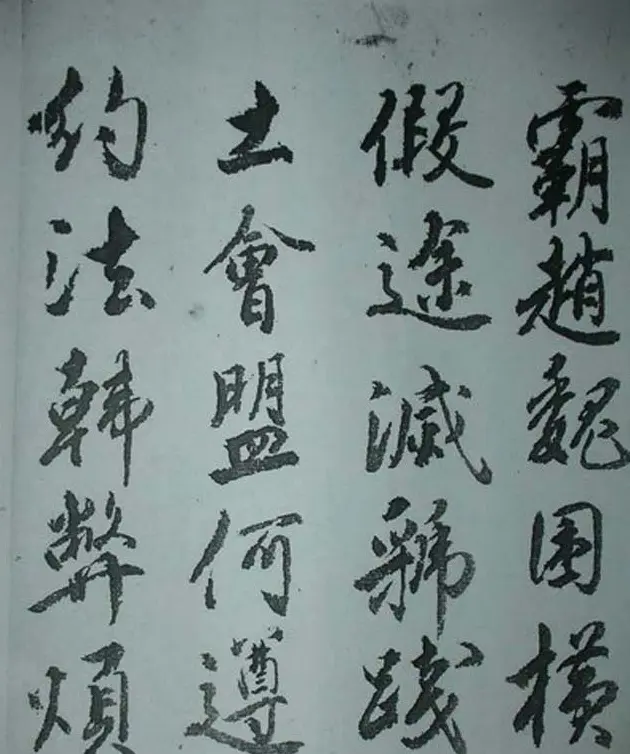 霸趙魏困橫
假途滅虢踐
土會盟何遵
約法韓弊煩